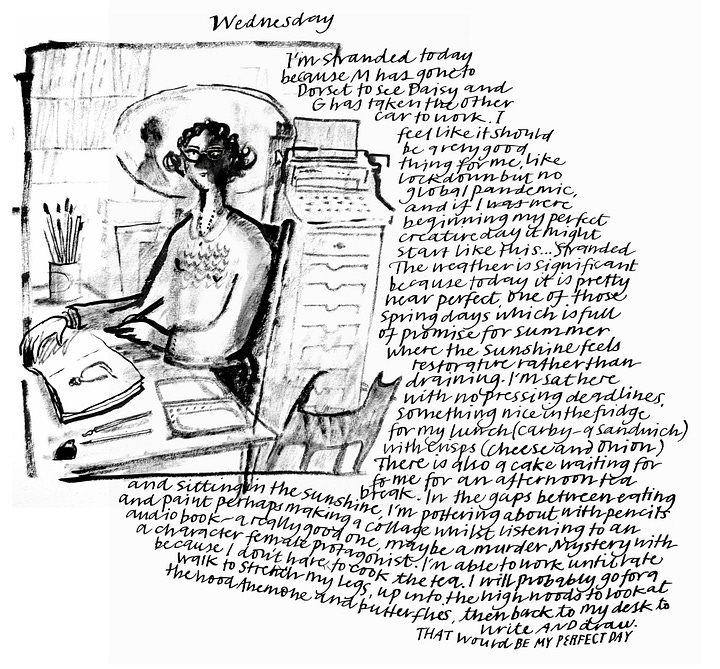 Wednesday
I'm stranded today
because M has gone to
Dorset to see Daisy and
G has taken the other
car to work. I
feel like it should
be a very good
thing for me, like
lockdown but no
global pandemic,
and if I was were
beginning my perfect
creature day it might
start like this... Stranded
The weather is significant
because today it is pretty
near perfect, one of those
spring days which is full
of promise for summer
where the sunshine feels
restorative rather than
draining. I'm sat here
with no pressing deadlines,
something nice in the fridge
for my lunch (carby - a sandwich)
with crisps (cheese and onion)
There is also a cake waiting for
to me for an afternoon tea
break. In the gaps between eating
and sitting in the sunshine, I'm pottering about with pencils
and paint perhaps making a collage whilst listening to an
audio book - a really good one, maybe a murder mystery with
a character female protagonist. I'm able to work until late
because I don't have to cook the tea. I will probably go for a
walk to stretch my legs, up into the high woods to look at
the wood anemone and butterflies, then back to my desk to
write AND draw.
THAT would BE MY PERFECT DAY